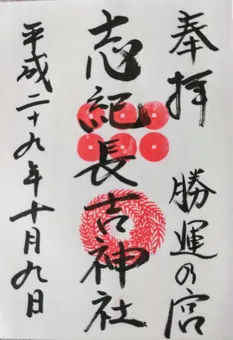 奉拝
勝運の宮
志紀長吉神社
平成二十九年十月九日